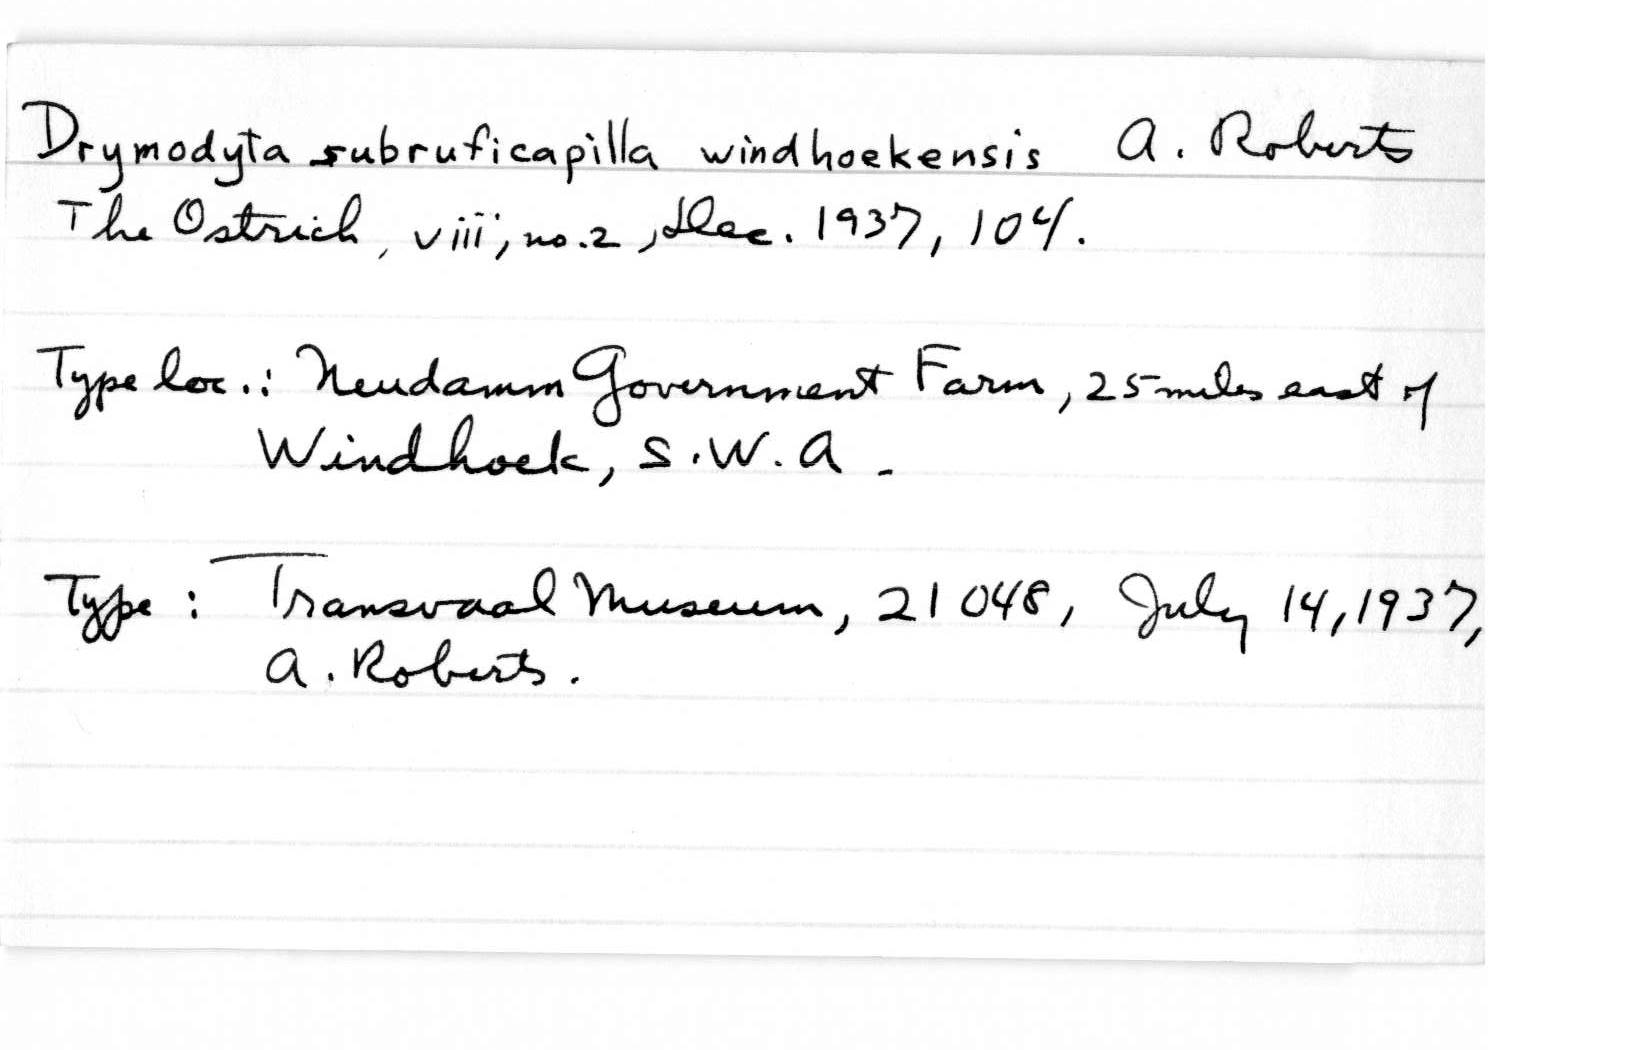 Drymodyta subruficapilla windhoekensis A. Roberts
The Ostrich, viii, no.2, Dec. 1937, 104.
Type loc.: Neudamm Government Farm, 25 miles east of
Windhoek, S.W.A.
Type: Transvaal Museum, 21048, July 14, 1937,
A. Roberts.